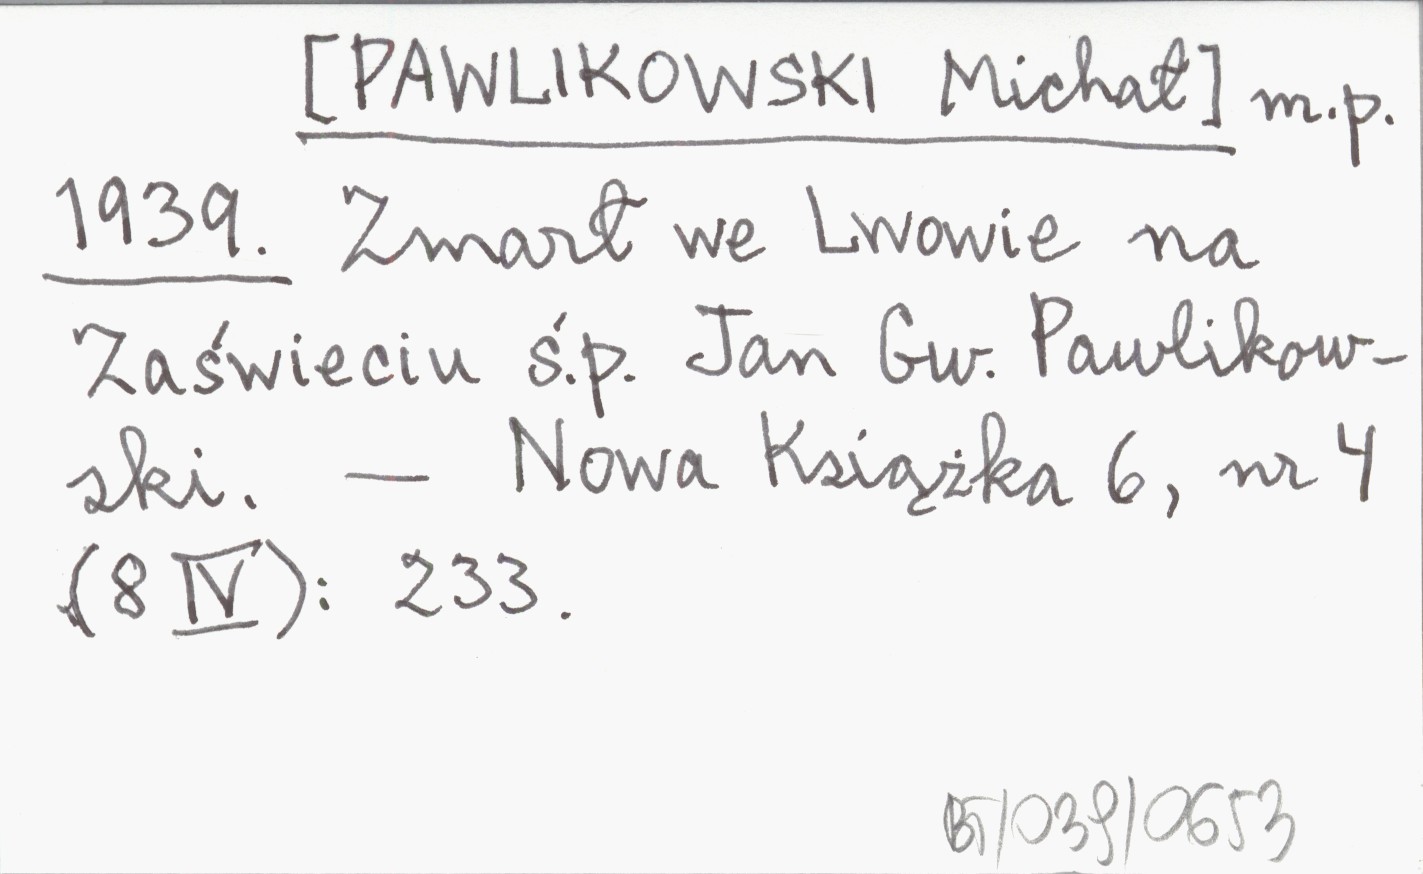 [PAWLIKOWSKI Michał] m.p.
1939. Zmarł we Lwowie na
Zaświeciu ś.p. Jan Gw. Pawlikow-
ski. — Nowa Książka 6, nr 4
(8 IV): 233.
BT/039/0653